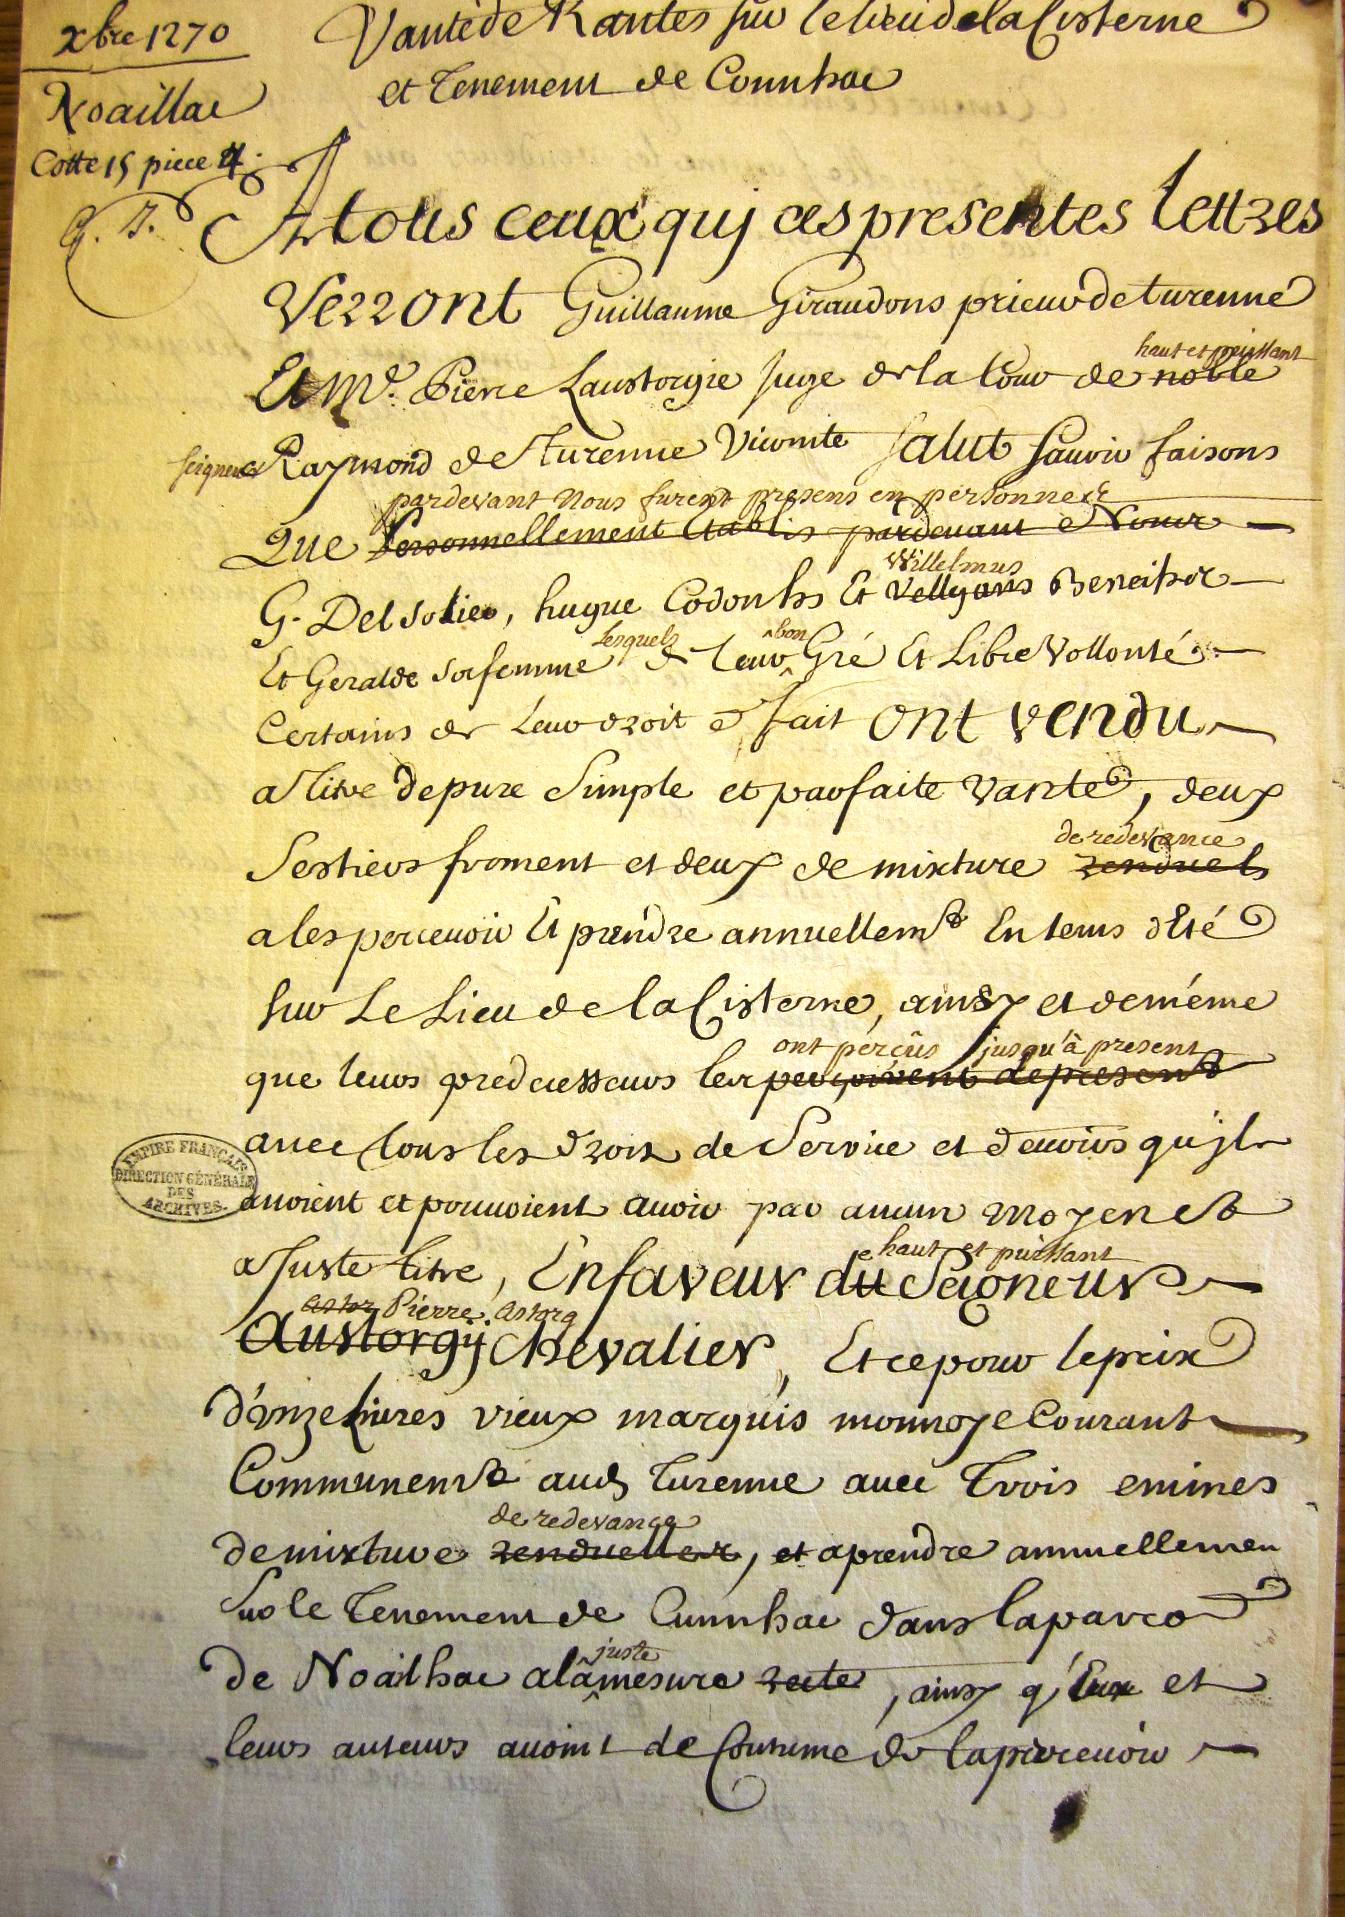 xbre 1270
Noaillac
Cotte 15 piece 4.
G. J.
Vante de Rantes sur le lieu de la Cisterne
et Tenement de Connhac
A tous ceux quj ces presentes lettres
Verront Guillaume Giraudons prieur de turenne
haut et puissant
Et Me. Pierre Laustorgie Juge de la Cour de noble
seigneur Raymond de Turenne Vicomte Salut sauoir faisons
pardevant Nous furent presens en personne
Que Personnellement Etablis pardeuant Nous
Willelmus
G. Del Solier, hugue Codonhs Et Vellyans Beneihor
lesquels bon
Et Geralde sa femme de leur Gré Et Libre Vollonté
Certains de Leur droit e fait ont vendu
a Titre de pure Simple et parfaite Vante, deux
de redevance
Sestiers froment et deux de mixture renduels
a les perceuoir Et prendre annuellemt En tems d'Eté
sur Le Lieu de la Cisterne, ainsy et de même
ont percûs jusqu'à present
que leurs predecesseurs les perçoivent de present
auec tous les droix de Service et deuoirs qu'jls
auoient et pouuoient auoir par aucun moyen Et
EMPIRE FRANÇAIS
DIRECTION GÉNÉRALE
DES
ARCHIVES.
haut et puissant
a Juste titre, En faveur du Seigneur
astor Pierre. astorg
Austorgij Chevalier, Et ce pour le prix
d'onze Livres vieux marquis monnoye Courant
Communemt aud Turenne auec Trois emines
de redevance
de mixture renduelles, et a prendre annuellemen
sur le Tenement de Cunnhac dans la parro
juste
de Noailhac a la mesure recte, ainsy q' Eux et
leurs auteurs auoint de Coutume de la perceuoir